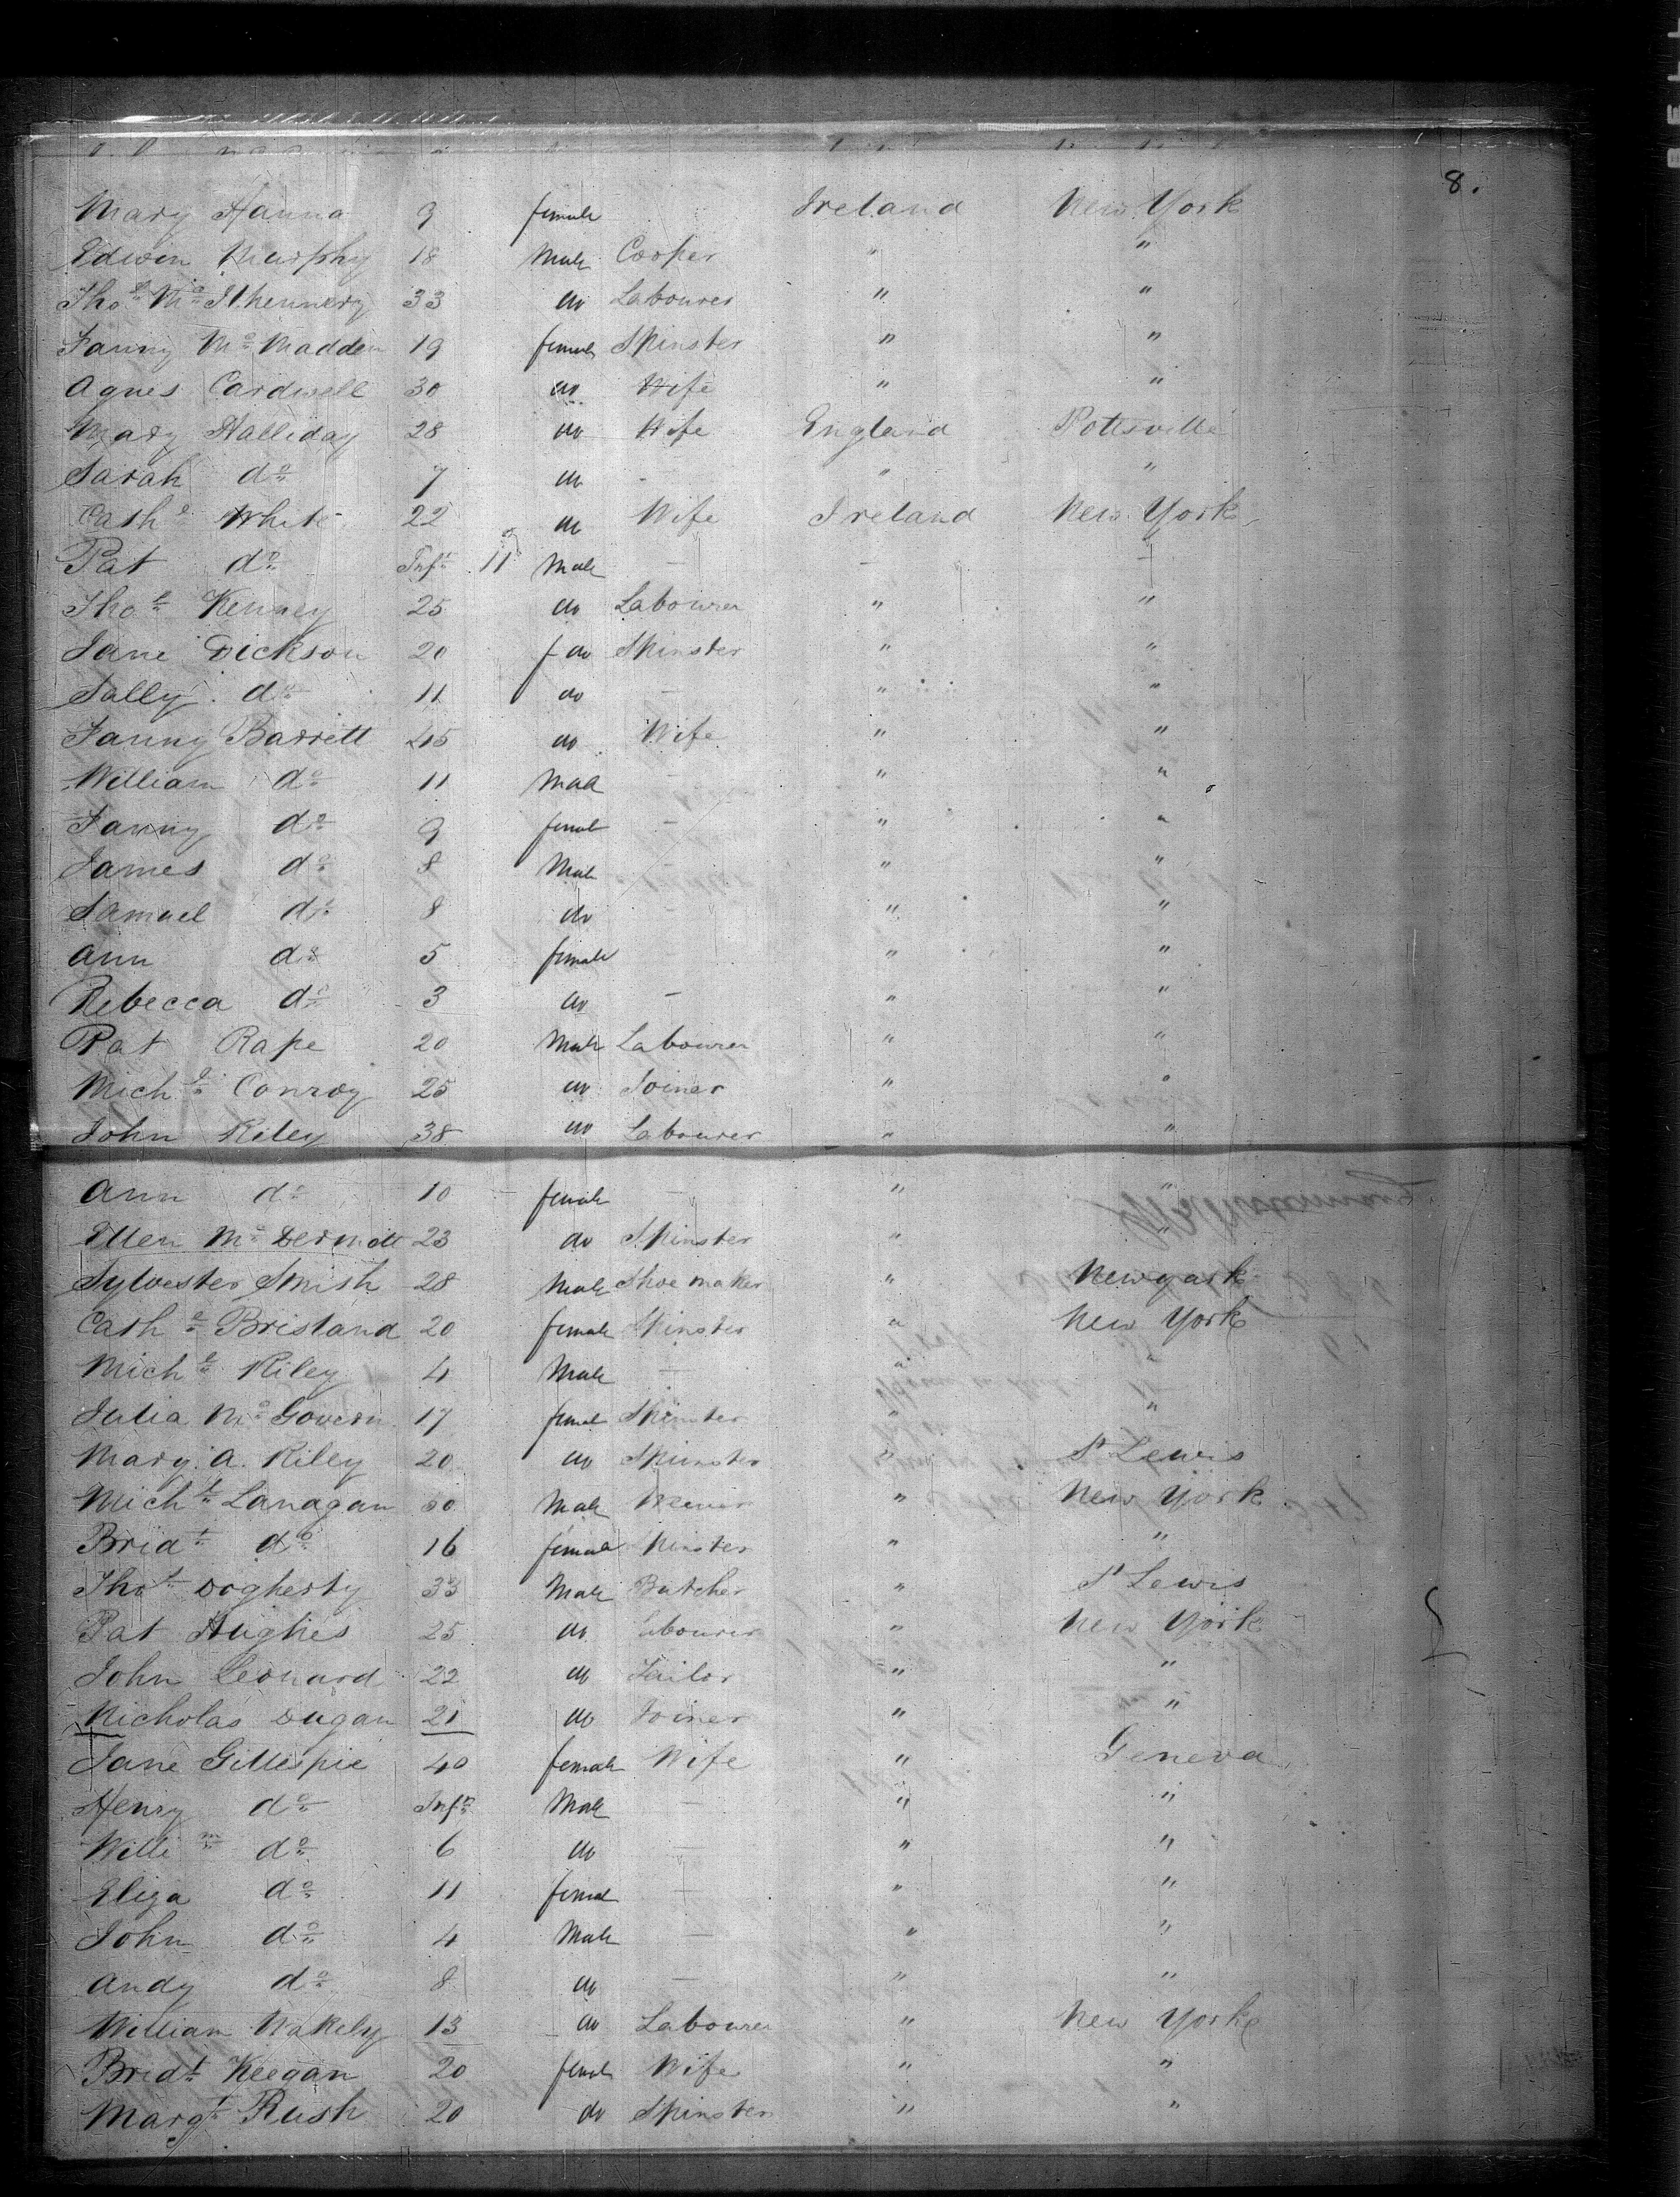 8.
Mary Hanna 9 female Ireland New York
Edwin Murphy 18 Male Cooper " "
Thos Mc Ilhennery 33 do Labourer " "
Fanny Mc Madden 19 female Spinster " "
Agnes Cardwell 30 do Wife " "
Mary Halliday 28 do Wife England Pottsville
Sarah do 7 do - " "
Cathe White 22 do Wife Ireland New York
Pat do Inft 11 Male - - -
Thos Kenney 25 do Labourer " "
Jane Dickson 20 f do Spinster " "
Sally do 11 do - " "
Fanny Barrett 45 do Wife " "
William do 11 Male - " "
Fanny do 9 female - " "
James do 8 Male " "
Samuel do 8 do - " "
Ann do 5 female " "
Rebecca do 3 do - " "
Pat Rape 20 Male Labourer " "
Michl Conroy 25 do Joiner " "
John Riley 38 do Labourer " "
Ann do 10 female - " "
Ellen Mc Dermott 23 do Spinster " "
Sylvester Smish 28 Male Shoe maker " Newyark
Cathe Brisland 20 female Spinster " New York
Michl Riley 4 Male - " "
Julia Mc Govern 17 female Spinster " "
Mary A. Riley 20 do Spinster " St Lewis
Michl Lanagan Male " New York
Bridt do 16 female Spinster " "
Thos Dogherty 33 Male Butcher " St Lewis
Pat Hughes 25 do Labourer " New York
John Leonard 22 do Tailor " "
Nicholas Dugan 21 do Joiner " "
Jane Gillespie 40 female Wife " Geneva
Henry do Inft Male - " "
Willim do 6 do - " "
Eliza do 11 female - " "
John do 4 Male - " "
Andy do 8 do - " "
William Wakely 13 do Labourer " New York
Bridt Keegan 20 female Wife " "
Margt Rush 20 do Spinster " "